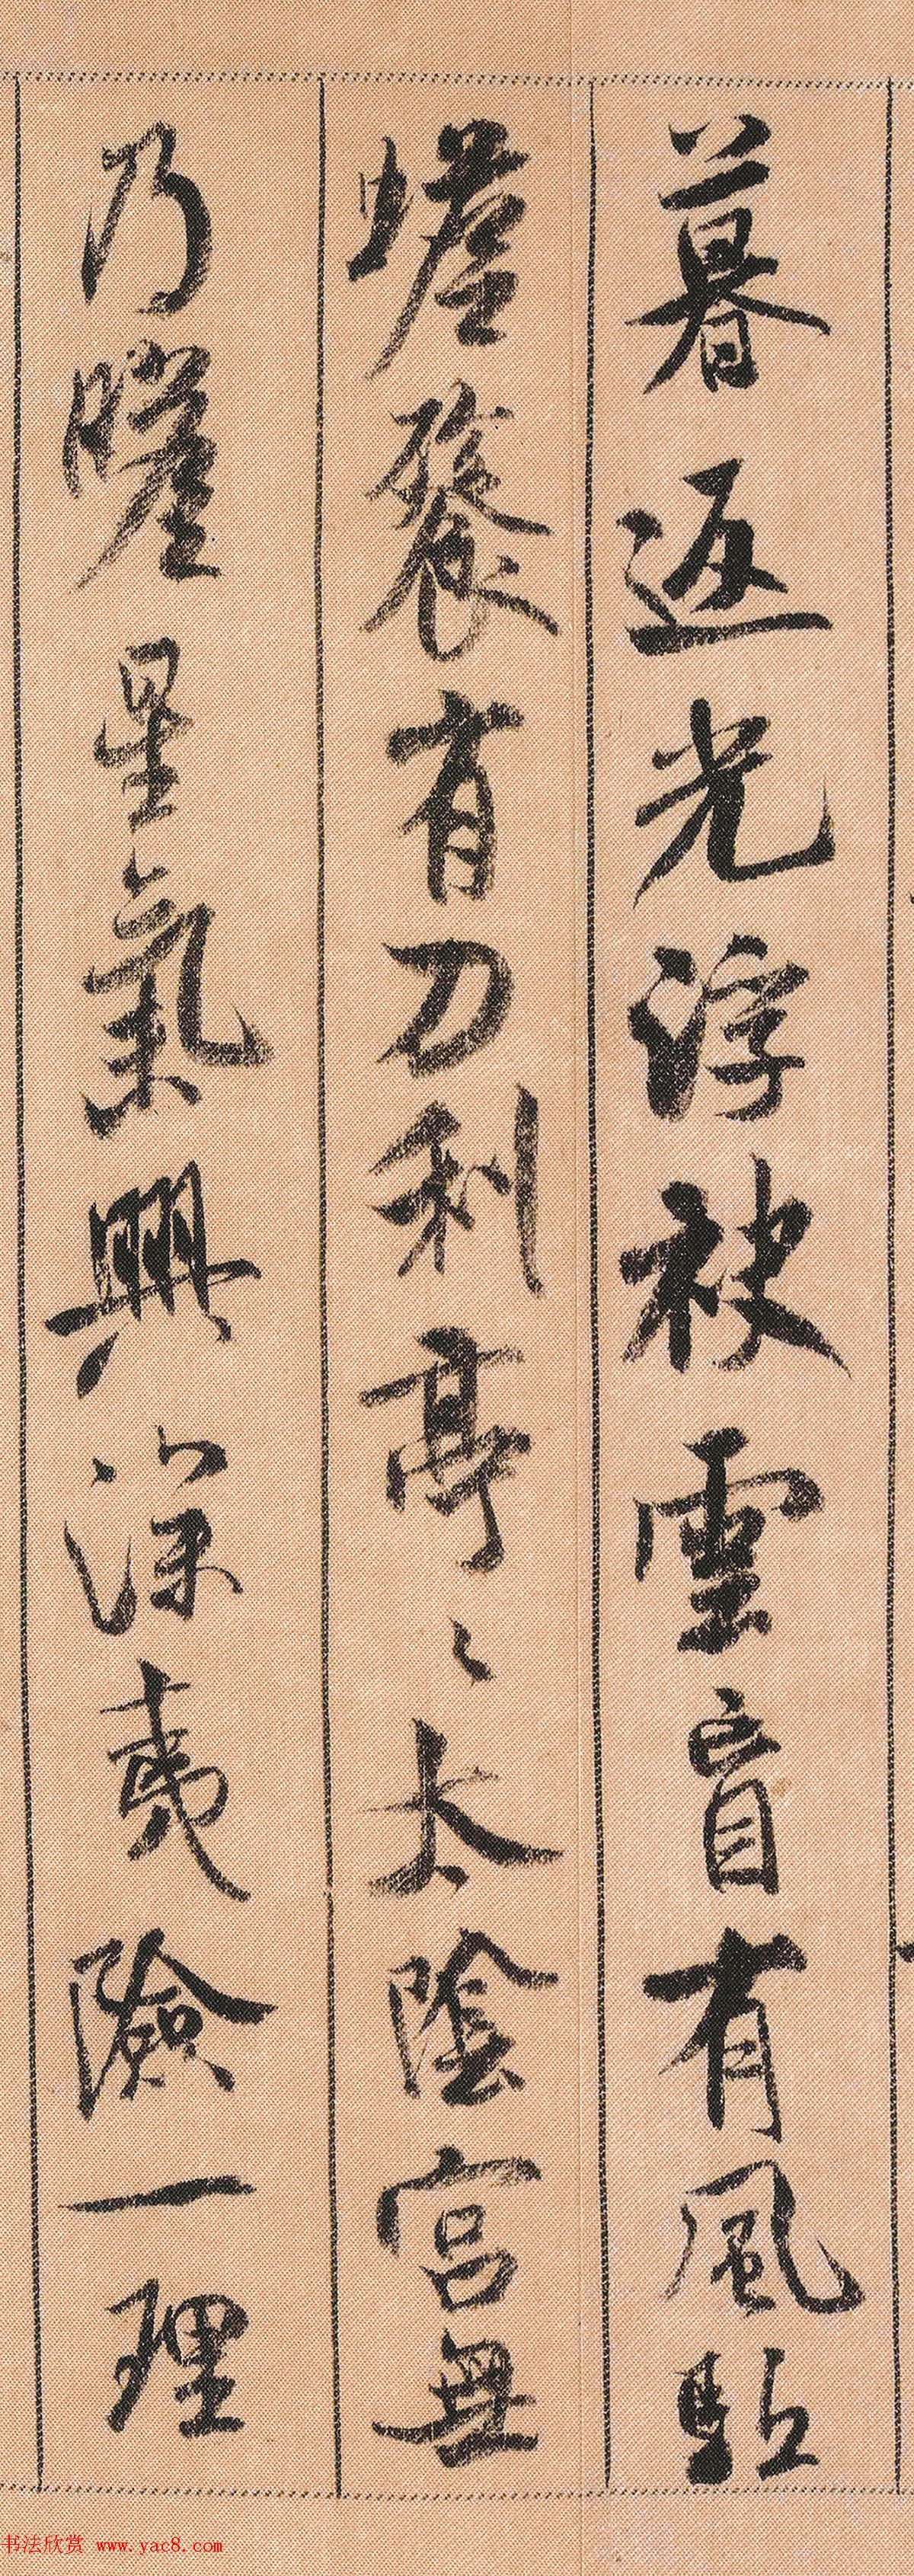 暮返光浮袂雲盲有風駈
蟾餮有刀利亭々太陰宮無
乃瞻星氣興深夷險一理
书法欣赏 www.yac8.com